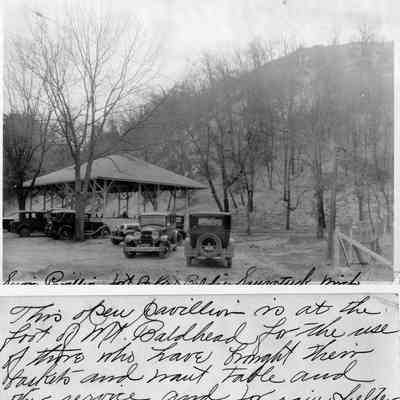 Pavillion foot of Mt. Baldhead Saugatuck Mich
This open Pavillion is at the
foot of Mt. Baldhead for the use
of those who have brought their
baskets and want table and
service and for rain shelter